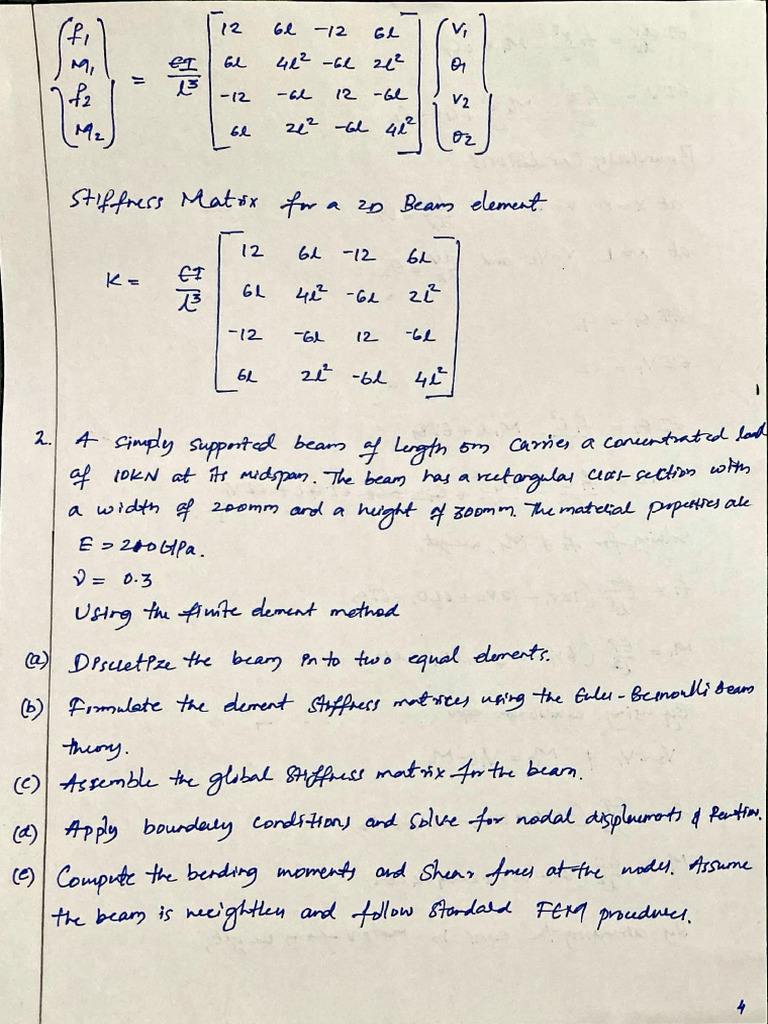 {f1 M1 f2 M2} = EI/l³ [12 6l -12 6l] {v1 θ1 v2 θ2}
6l 4l² -6l 2l²
-12 -6l 12 -6l
6l 2l² -6l 4l²
Stiffness Matrix for a 2D Beam element
K = EI/l³ [12 6l -12 6l]
6l 4l² -6l 2l²
-12 -6l 12 -6l
6l 2l² -6l 4l²
2. A simply supported beam of length 5m carries a concentrated load
of 10KN at its midspan. The beam has a rectangular cross-section with
a width of 200mm and a height of 300mm. The material properties are
E = 200GPa.
ν = 0.3
Using the finite element method
(a) Discretize the beam in to two equal elements.
(b) Formulate the element stiffness matrices using the Euler-Bernoulli Beam
theory.
(c) Assemble the global stiffness matrix for the beam.
(d) Apply boundary conditions and solve for nodal displacements & Reaction.
(e) Compute the bending moments and shear forces at the nodes. Assume
the beam is weightless and follow standard FEM procedures.
4